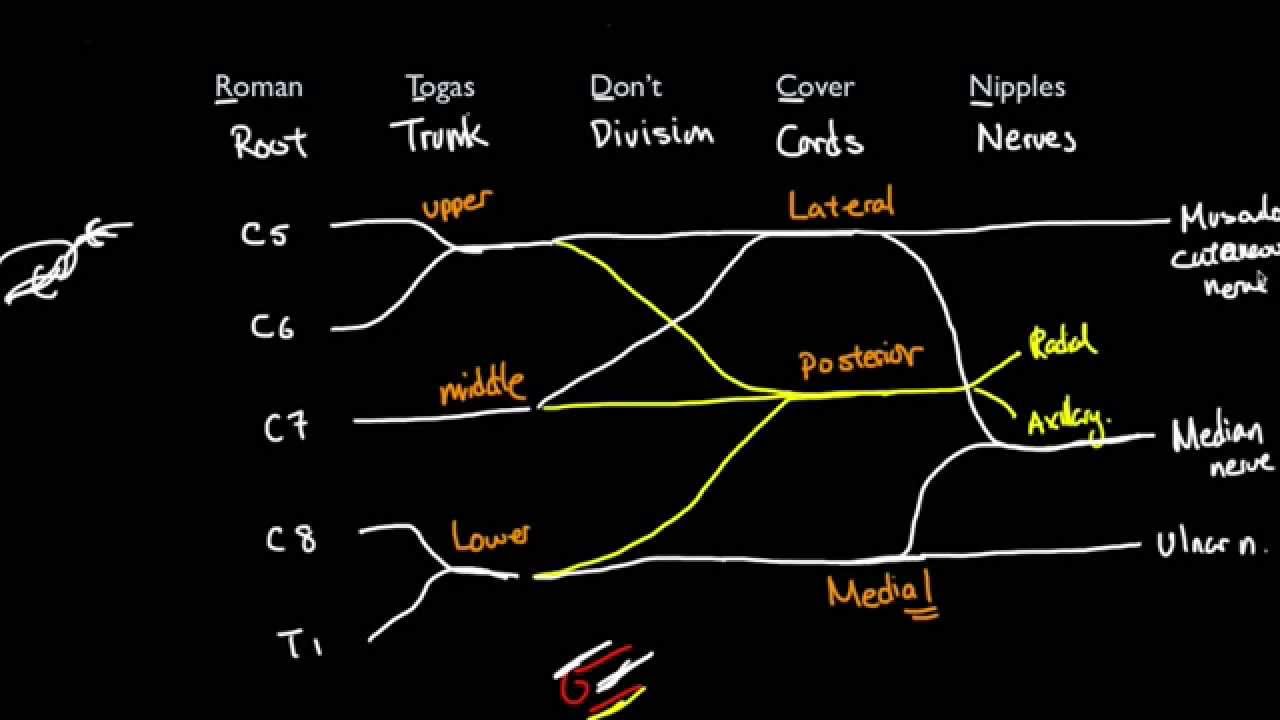 Roman Togas Don't Cover Nipples
Root Trunk Division Cords Nerves
upper Lateral
C5
cutaneous
C6
Posterior
middle
Axillary.
C7
Median
nerve
Lower
C8
Ulnar n.
Medial
T1